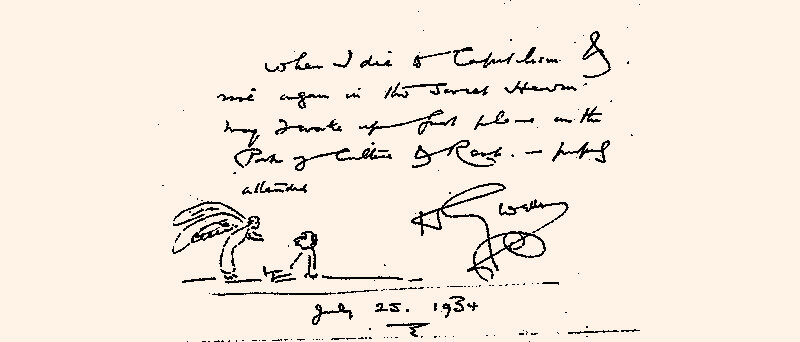 When I die to Capitalism &
rise again in the Soviet Heaven
may I wake up first please in the
Park of Culture & Rest. — properly
attended
H G Wells
July 25. 1934